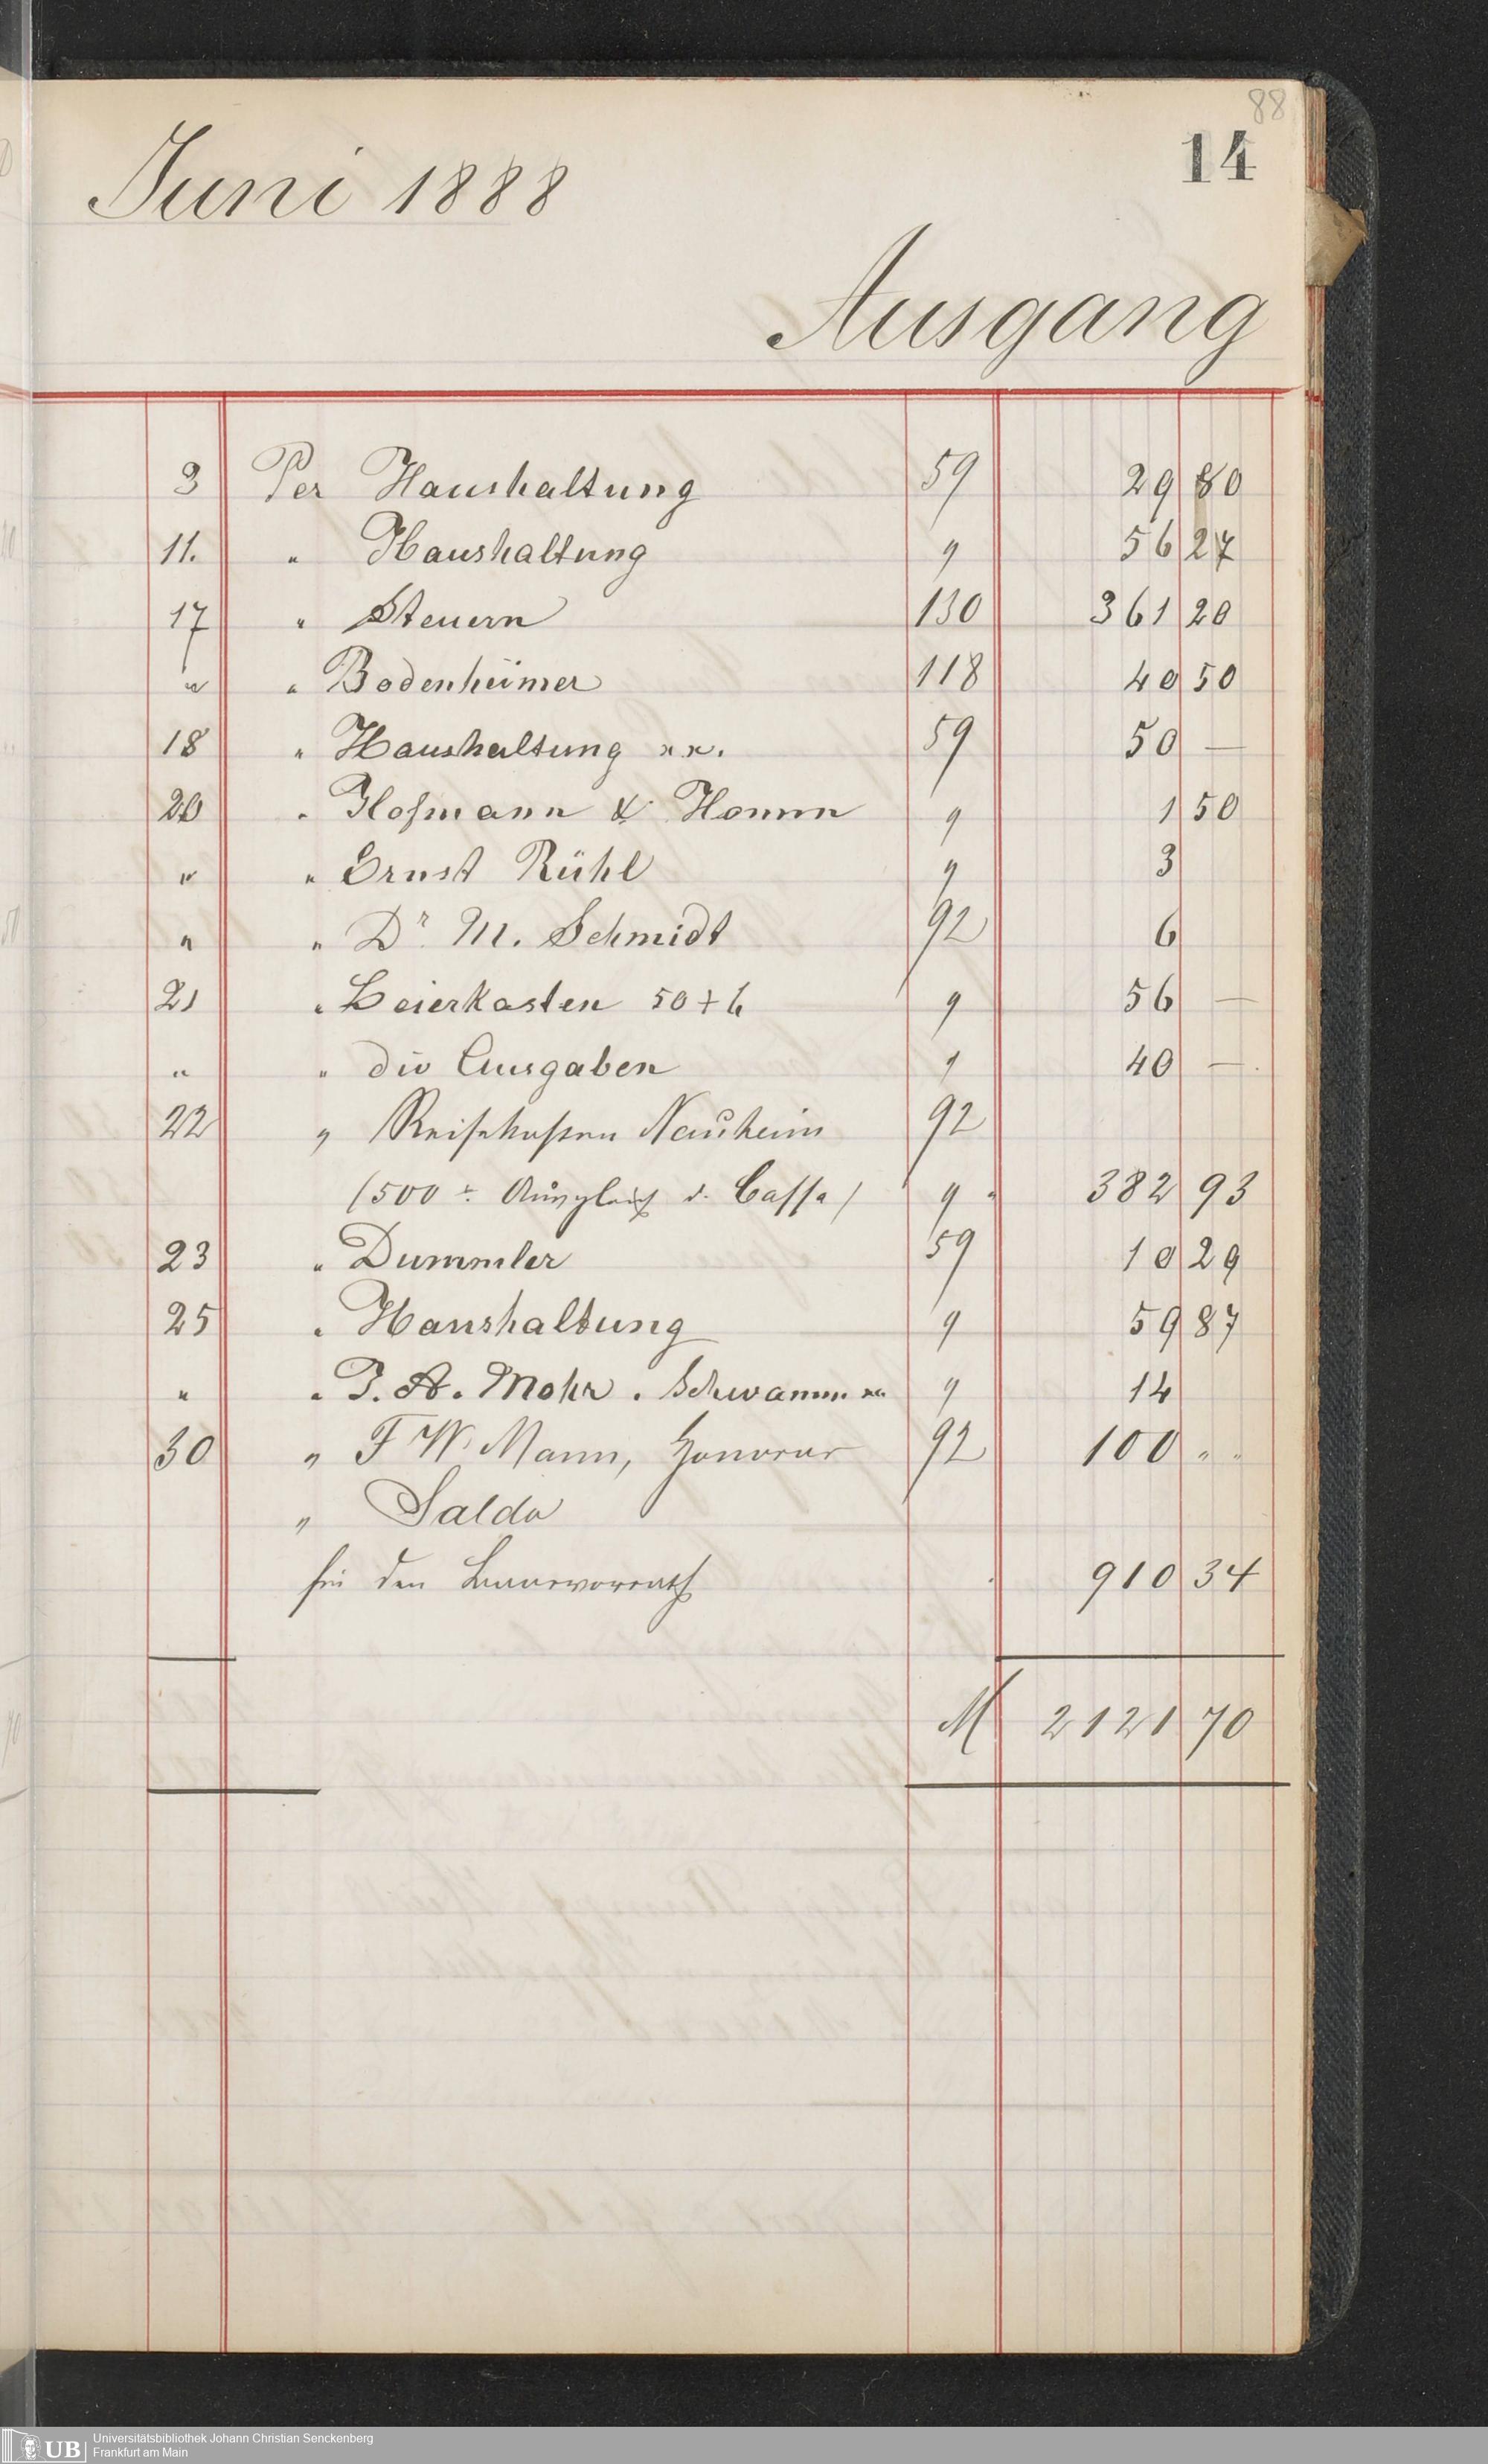 88
14
Juni 1888
Ausgang
3 Per Haushaltung 59 29 80
11. " Haushaltung " 56 27
17 " Steuern 130 361 20
" " Bodenheimer 118 40 50
18 " Haushaltung 59 50 —
20 " Hofmann & " 1 50
" " Ernst Rühl " 3
" " Dr. M. Schmidt 92 6
21 " Leierkasten 50 + 6 " 56 —
" " div Ausgaben " 40 —
22 " Reisekosten Nauheim 92
(500 Ausgleich d. Cassa) " 382 93
23 " Dummler 59 10 29
25 " Haushaltung " 59 87
" " J. A. Mohr. Schwamm " 14
30 " F W. Mann, Honorar 92 100 " "
" Saldo
für den Baarvorrath 910 34
M 2121 70
UB Universitätsbibliothek Johann Christian Senckenberg
Frankfurt am Main